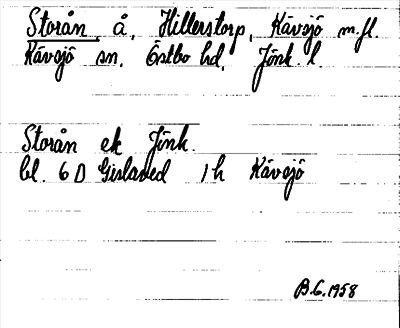 Storån, å, Hillerstorp, Kävsjö m.fl.
Kävsjö sn, Östbo hd, Jönk. l
Storån ek Jönk.
bl. 6 D Gislaved 1 h Kävsjö
B.G. 1958